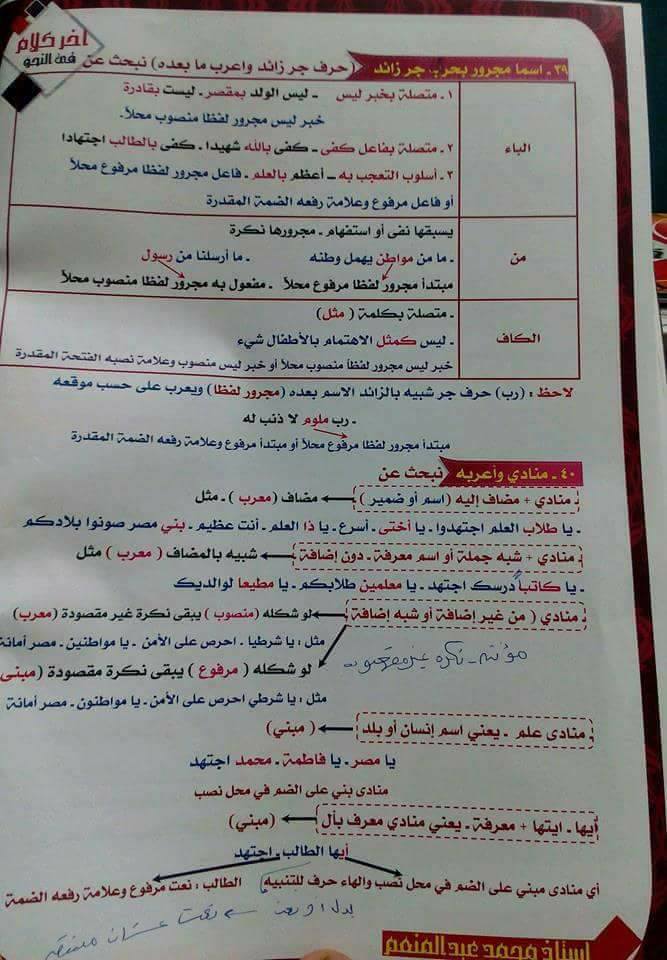 آخر كلام
في النحو
٣٩ ـ اسما مجرور بحرف جر زائد (حرف جر زائد واعرب ما بعده) نبحث عن
الباء
١ ـ متصلة بخبر ليس ـ ليس الولد بمقصر ـ ليست بقادرة
خبر ليس مجرور لفظا منصوب محلاً.
٢ ـ متصلة بفاعل كفى ـ كفى بالله شهيدا ـ كفى بالطالب اجتهادا
٣ ـ أسلوب التعجب به ـ أعظم بالعلم ـ فاعل مجرور لفظا مرفوع محلاً
أو فاعل مرفوع وعلامة رفعه الضمة المقدرة
من
يسبقها نفى أو استفهام ـ مجرورها نكرة
ـ ما من مواطن يهمل وطنه ـ ما أرسلنا من رسول
مبتدأ مجرور لفظا مرفوع محلاً ـ مفعول به مجرور لفظا منصوب محلاً
الكاف
ـ متصلة بكلمة ( مثل)
ـ ليس كمثل الاهتمام بالأطفال شيء
خبر ليس مجرور لفظاً منصوب محلاً أو خبر ليس منصوب وعلامة نصبه الفتحة المقدرة
لاحظ : (رب) حرف جر شبيه بالزائد الاسم بعده (مجرور لفظا) ويعرب على حسب موقعه
ـ رب ملوم لا ذنب له
مبتدأ مجرور لفظا مرفوع محلاً أو مبتدأ مرفوع وعلامة رفعه الضمة المقدرة
٤٠ ـ منادي وأعربه نبحث عن
منادي + مضاف إليه (اسم أو ضمير ) مضاف (معرب ) ـ مثل
ـ يا طلاب العلم اجتهدوا ـ يا أختى ـ أسرع ـ يا ذا العلم ـ أنت عظيم ـ بني مصر صونوا بلادكم
منادي + شبه جملة أو اسم معرفة ـ دون إضافة شبيه بالمضاف ( معرب ) مثل
ـ يا كاتباً درسك اجتهد ـ يا معلمين طلابكم ـ يا مطيعا لوالديك
منادي ( من غير إضافة أو شبه إضافة) لو شكله (منصوب ) يبقى نكرة غير مقصودة (معرب)
مثل : يا شرطيا ـ احرص على الأمن ـ يا مواطنين ـ مصر أمانة
نكره غير مقصوده
لو شكله ( مرفوع ) يبقى نكرة مقصودة (مبني
مثل : يا شرطي احرص على الأمن ـ يا مواطنون ـ مصر أمانة
منادى علم ـ يعني اسم إنسان أو بلد ( مبني)
يا مصر ـ يا فاطمة ـ محمد اجتهد
منادى بني على الضم في محل نصب
أيها ـ ايتها + معرفة ـ يعني منادي معرف بأل (مبني)
أيها الطالب ـ اجتهد
أي منادى مبني على الضم في محل نصب والهاء حرف للتنبيه الطالب : نعت مرفوع وعلامة رفعه الضمة
بدل او نعت نعت عشان
استاذ محمد عبد المنعم